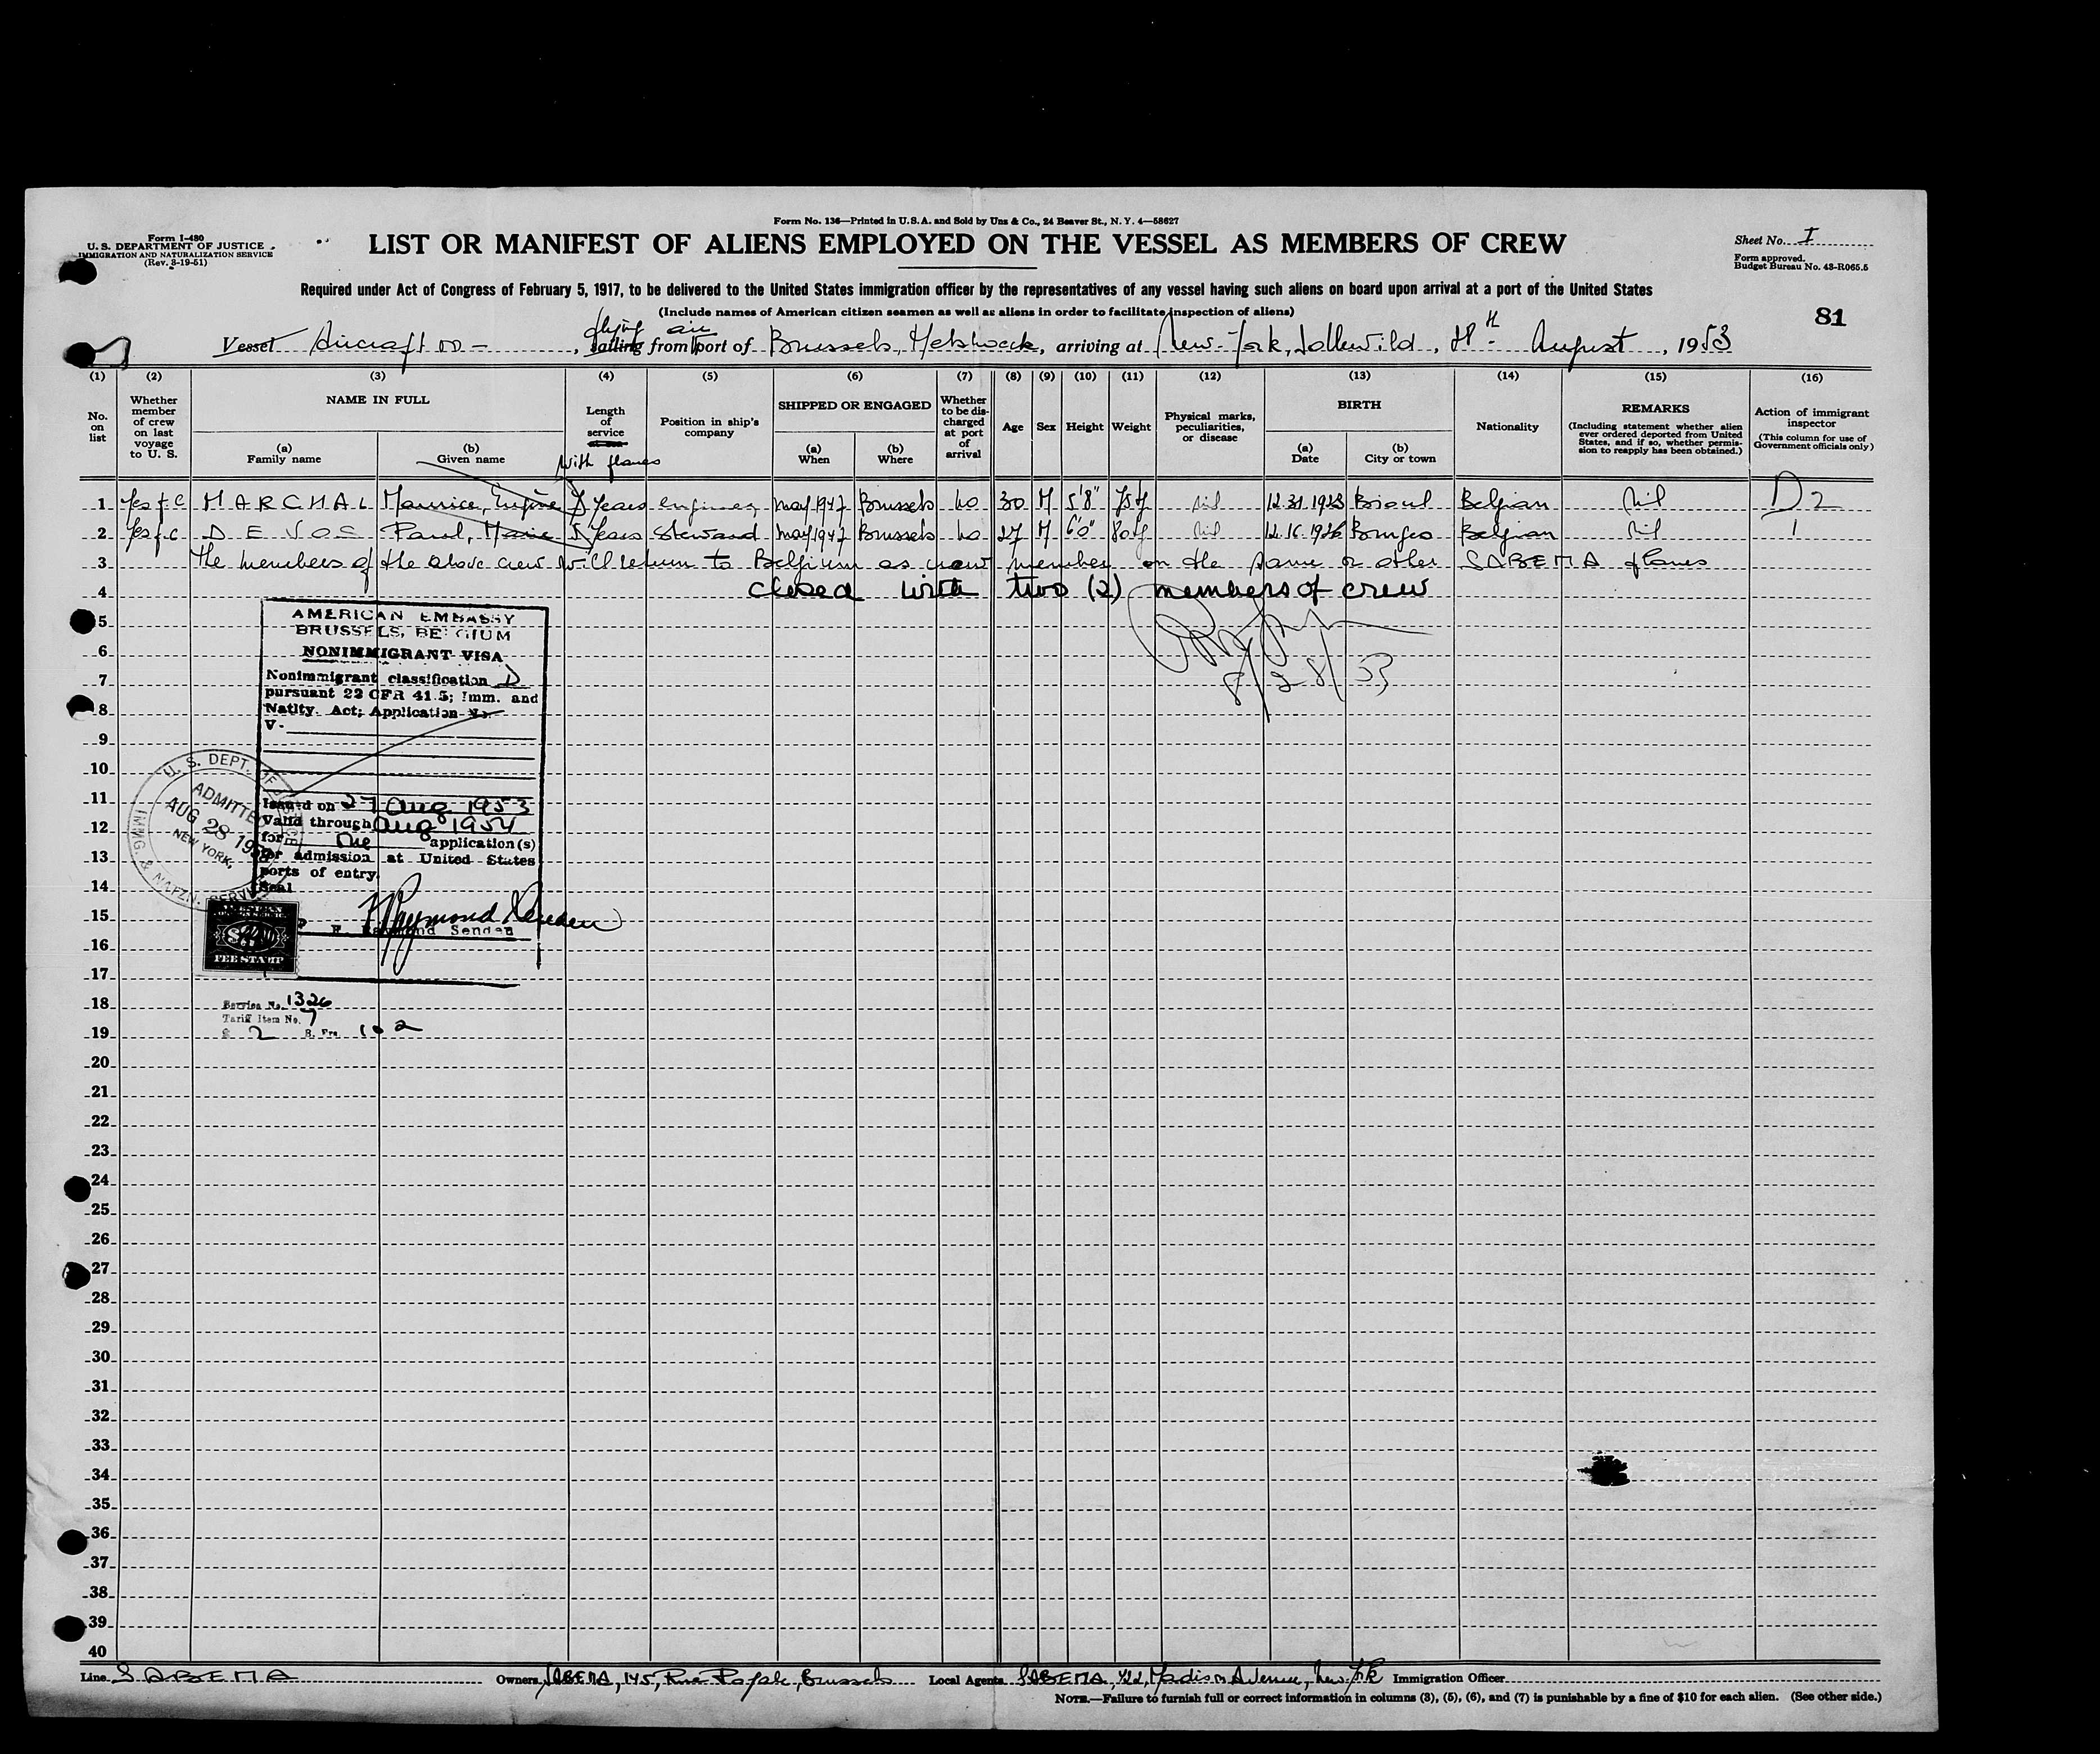 Form No. 136—Printed in U.S.A. and Sold by Unz & Co., 24 Beaver St., N. Y. 4—58627
Form I-480
U. S. DEPARTMENT OF JUSTICE
IMMIGRATION AND NATURALIZATION SERVICE
(Rev. 3-19-51)
LIST OR MANIFEST OF ALIENS EMPLOYED ON THE VESSEL AS MEMBERS OF CREW
Sheet No. I
Form approved.
Budget Bureau No. 43-R065.5
Required under Act of Congress of February 5, 1917, to be delivered to the United States immigration officer by the representatives of any vessel having such aliens on board upon arrival at a port of the United States
(Include names of American citizen seamen as well as aliens in order to facilitate inspection of aliens)
81
Vessel Aircraft OO - , sailing flying from air port of Brussels, Melsbroek, arriving at New-York, Idlewild, August, 1953
(1) (2) (3) (4) (5) (6) (7) (8) (9) (10) (11) (12) (13) (14) (15) (16)
No. on list
Whether member of crew on last voyage to U. S.
NAME IN FULL
(a) Family name
(b) Given name
Length of service
with planes
Position in ship's company
SHIPPED OR ENGAGED
(a) When
(b) Where
Whether to be discharged at port of arrival
Age
Sex
Height
Weight
Physical marks, peculiarities, or disease
BIRTH
(a) Date
(b) City or town
Nationality
REMARKS
(Including statement whether alien ever ordered deported from United States, and if so, whether permission to reapply has been obtained.)
Action of immigrant inspector
(This column for use of Government officials only)
1 Yes f.c MARCHAL Maurice, Eugène Years engineer May 1947 Brussels no 30 M 5'8" nil 12.31.1923 Belgian nil D2
2 Yes f.c DEVOS Paul, Marie 5 Years Steward May 1947 Brussels no 27 M 6'0" nil 12.16.1926 Belgian nil 1
3 The members of the above crew will return to Belgium as crew member on the same or other SABENA planes
4 closed with two (2) members of crew
8/28/53
5
6
7
8
9
10
11
12
13
14
15
16
17
18
19
20
21
22
23
24
25
26
27
28
29
30
31
32
33
34
35
36
37
38
39
40
AMERICAN EMBASSY
BRUSSELS, BELGIUM
NONIMMIGRANT VISA
Nonimmigrant classification D
pursuant 22 CFR 41.5; Imm. and
Natlty. Act; Application No.
V-
Issued on 27 Aug 1953
Valid through Aug 1954
for One application(s)
for admission at United States
ports of entry.
Seal
F. Raymond Senden
U. S. DEPT. OF JUSTICE
ADMITTED
AUG 28 1953
NEW YORK,
IMMG. & NATZN. SERVICE
FEE STAMP
Service No. 1326
Tariff Item No. 7
$ 2 B. Frs. 102
Line SABENA
Owners SABENA, 145, Rue Royale, Brussels
Local Agents SABENA, 422, Madison Avenue, New York
Immigration Officer
NOTE.—Failure to furnish full or correct information in columns (3), (5), (6), and (7) is punishable by a fine of $10 for each alien. (See other side.)